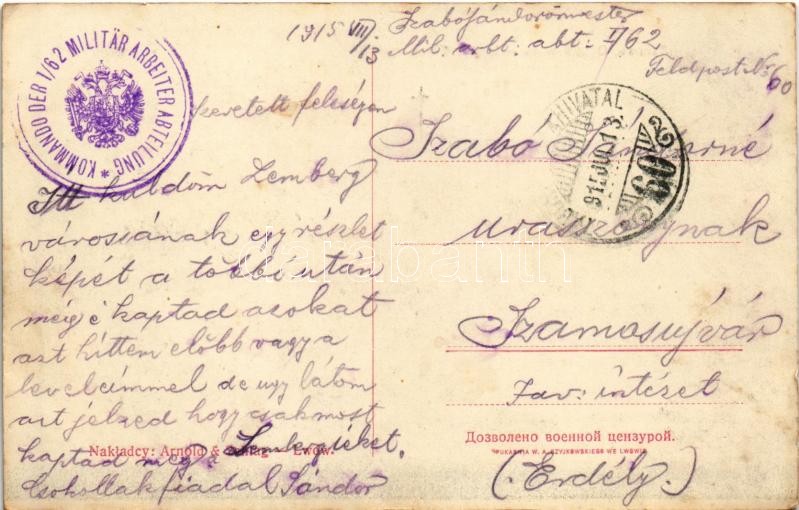 1915 VIII/13
Szabó Sándor őrmester
Mil. arbt. abt. I/62
Feldpost No 60
KOMMANDO DER 1/62 MILITÄR ARBEITER ABTEILUNG *
915 JUL 13
60
Szeretett feleségem
Itt küldöm Lemberg
városának egy részlet
képét a többi után
meg é kaptad azokat
azt hittem előbb vagy a
leveleimmel de ugy látom
azt jelzed hogy csak most
kaptad meg
Csokollak fiadal Sándor
Szabó Sándorné
urasszonynak
Szamosujvár
Jav: intézet
(Erdély.)
Nakładcy: Arnold & Lwów.
Дозволено военной цензурой.
DRUKARNIA W. A. SZYJKOWSKIEGO WE LWOWIE
darabanth